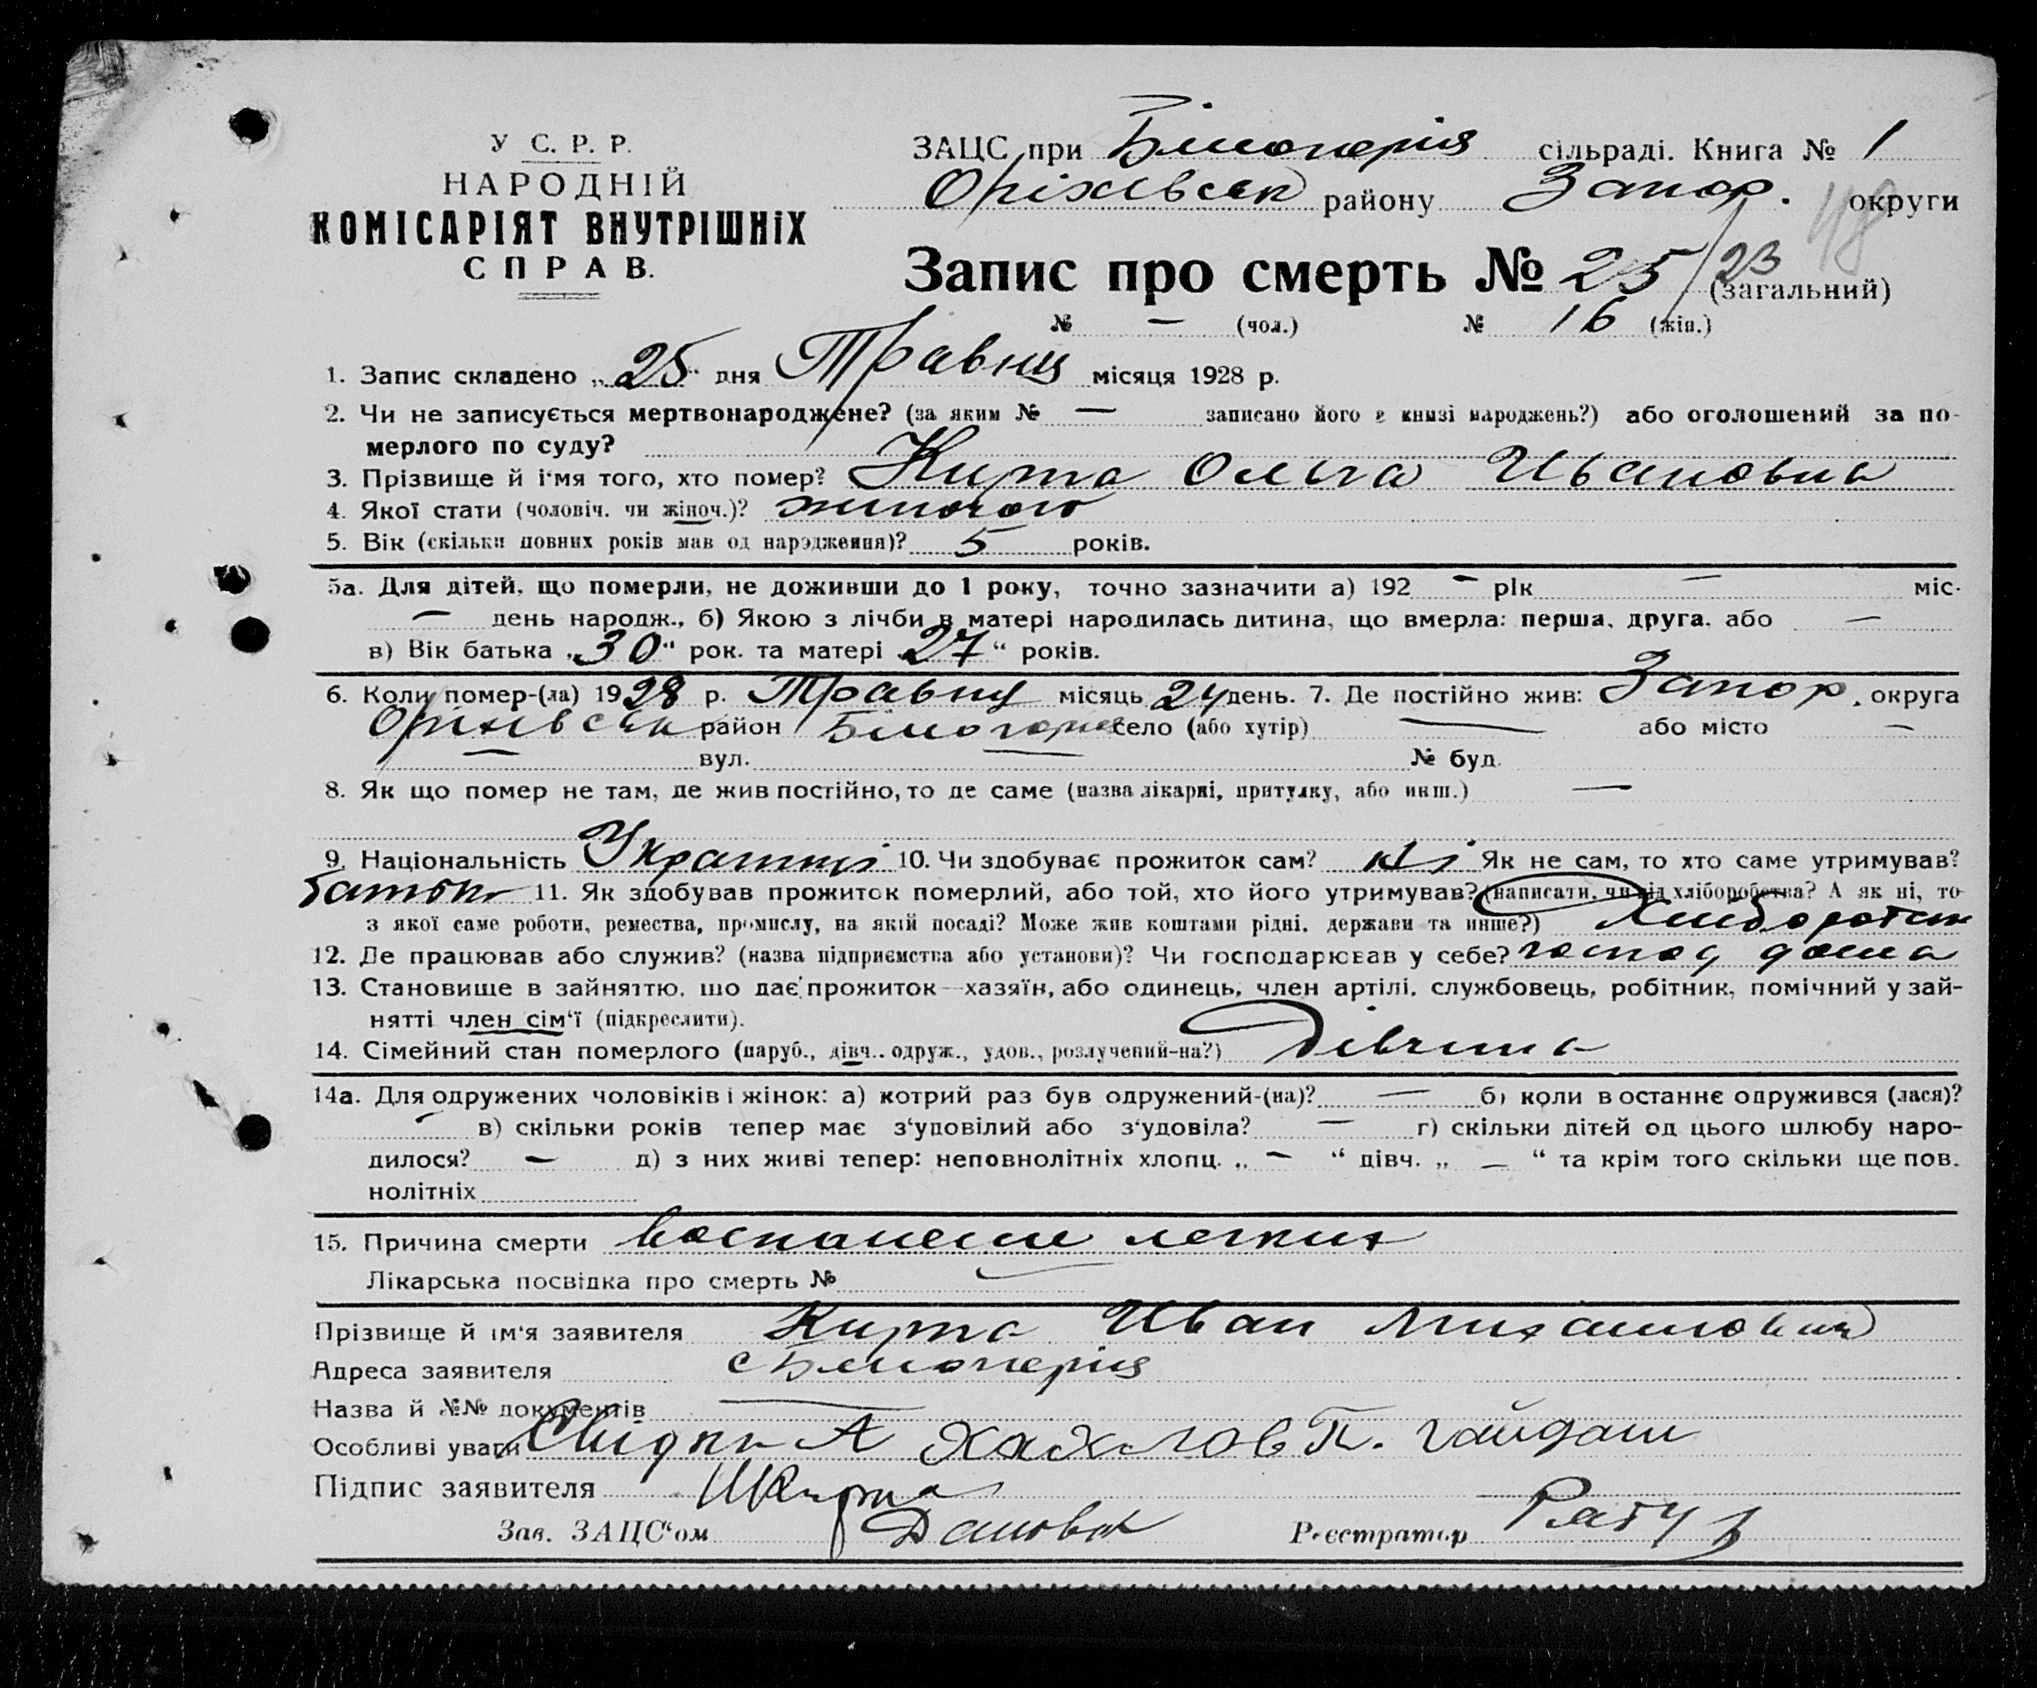 У С. Р. Р.
НАРОДНІЙ
КОМІСАРІЯТ ВНУТРІШНІХ
СПРАВ.
ЗАЦС при Білогорія сільраді. Книга № 1
Оріхівськ району Запор. округи
48
Запис про смерть № 25/23 (загальний)
№ — (чол.) № 16 (жін.)
1. Запис складено „25“ дня Травня місяця 1928 р.
2. Чи не записується мертвонароджене? (за яким № — записано його в книзі народжень?) або оголошений за по-
мерлого по суду?
3. Прізвище й ім'я того, хто помер? Кирта Ольга Ивановна
4. Якої стати (чоловіч. чи жіноч.)? жиночого
5. Вік (скільки повних років мав од народження)? 5 років.
5а. Для дітей, що померли, не доживши до 1 року, точно зазначити а) 192 — рік — міс.
— день народж., б) Якою з лічби в матері народилась дитина, що вмерла: перша, друга. або —
в) Вік батька „30“ рок. та матері „27“ років.
6. Коли помер-(ла) 1928 р. Травня місяць 24 день. 7. Де постійно жив: Запор. округа
Оріхівськ район Білогорія село (або хутір) — або місто —
— вул. — № буд.
8. Як що помер не там, де жив постійно, то де саме (назва лікарні, притулку, або инш.) —
9. Національність 10. Чи здобуває прожиток сам? ні Як не сам, то хто саме утримував?
батько 11. Як здобував прожиток померлий, або той, хто його утримував? (написати, чи від хліборобства? А як ні, то
з якої саме роботи, ремества, промислу, на якій посаді? Може жив коштами рідні, держави та инше?)
12. Де працював або служив? (назва підприємства або установи)? Чи господарював у себе? господ дома
13. Становище в зайняттю, що дає прожиток—хазяїн, або одинець, член артілі, службовець, робітник, помічний у зай-
нятті член сім'ї (підкреслити).
14. Сімейний стан померлого (паруб., дівч., одруж., удов., розлучений-на?) Дівчина
14а. Для одружених чоловіків і жінок: а) котрий раз був одружений-(на)? — б) коли в останнє одружився (лася)?
— в) скільки років тепер має з'удовілий або з'удовіла? — г) скільки дітей од цього шлюбу наро-
дилося? — д) з них живі тепер: неповнолітніх хлопц. „ — “ дівч. „ — “ та крім того скільки ще пов.
нолітніх
15. Причина смерти воспаление легких
Лікарська посвідка про смерть № —
Прізвище й ім'я заявителя Кирта Иван Михайлович
Адреса заявителя с Білогорія
Назва й №№ документів —
Особливі уваги Свідки А Хахлов П. Гайдаш
Підпис заявителя И Кирта
Зав. ЗАЦС'ом Реєстратор